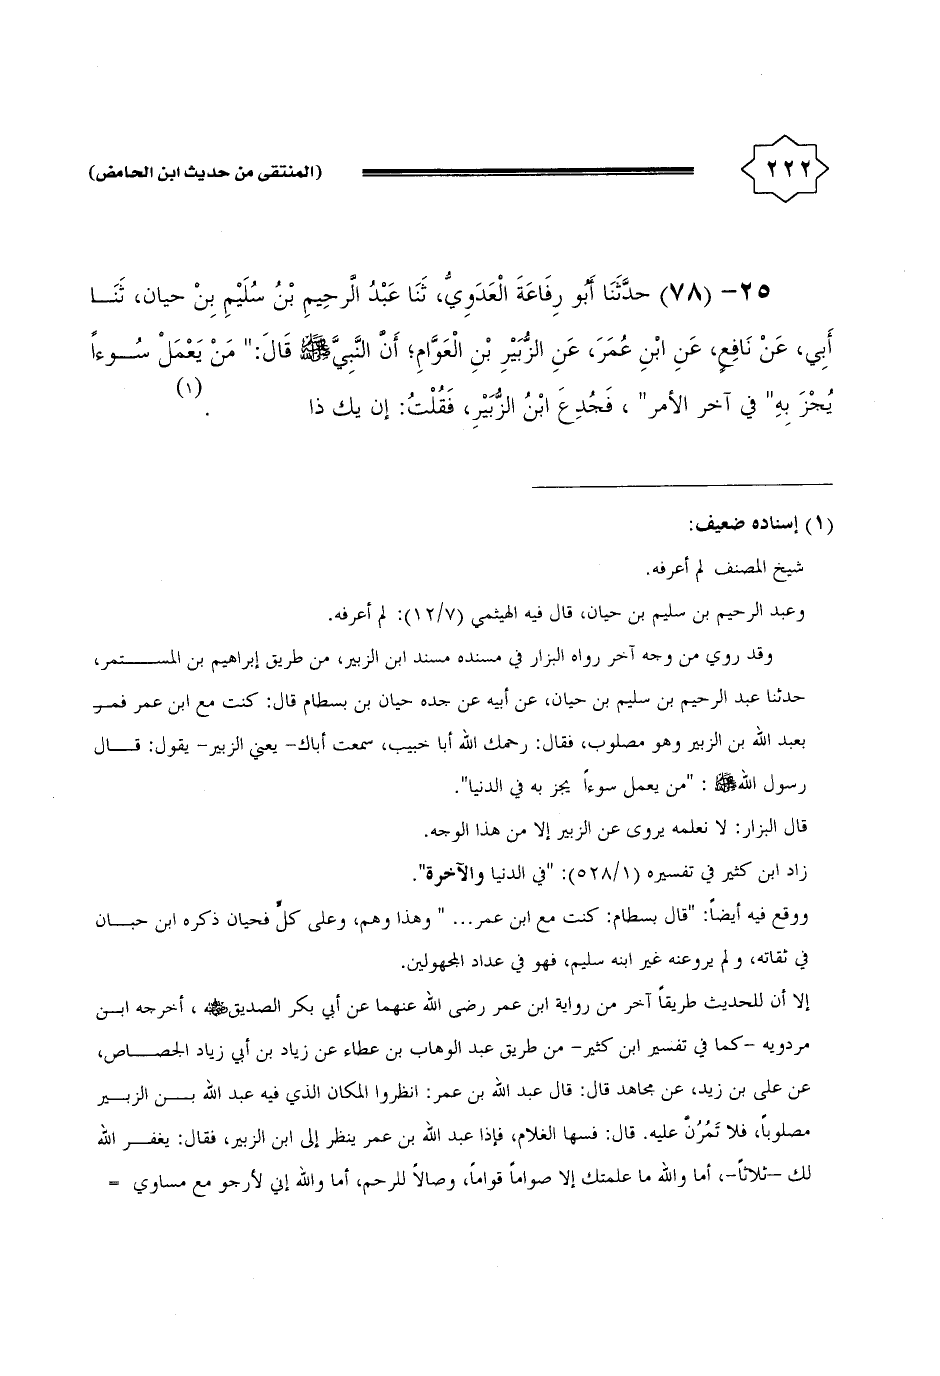 ٢٢٢
(المنتقى من حديث ابن الحامض)
٢٥- (٧٨) حدَّثَنَا أَبُو رِفَاعَةَ الْعَدَوِيُّ، ثَنَا عَبْدُ الَّرحِيمِ بْنُ سُلَيْمِ بِنْ حيان، ثَنَــا
أَبِي، عَنْ نَافِعٍ، عَنِ ابْنِ عُمَرَ، عَنِ الزُّبَيْرِ بْنِ الْعَوَّامِ؛ أَنَّ النَّبِيَّ ﷺ قَالَ:" مَنْ يَعْمَلْ سُــوءاً
يُجْزَ بِهِ" في آخر الأمر" ، فَجُدِعَ ابْنُ الزُّبَيْرِ، فَقُلْتُ: إن يك ذا . (١)
(١) إسناده ضعيف:
شيخ المصنف لم أعرفه.
وعبد الرحيم بن سليم بن حيان، قال فيه الهيثمي (١٢/٧): لم أعرفه.
وقد روي من وجه آخر رواه البزار في مسنده مسند ابن الزبير، من طريق إبراهيم بن المســـتمر،
حدثنا عبد الرحيم بن سليم بن حيان، عن أبيه عن جده حيان بن بسطام قال: كنت مع ابن عمر فمــر
بعبد الله بن الزبير وهو مصلوب، فقال: رحمك الله أبا خبيب، سمعت أباك- يعني الزبير- يقول: قــال
رسول الله ﷺ : "من يعمل سوءاً يجز به في الدنيا".
قال البزار: لا نعلمه يروى عن الزبير إلا من هذا الوجه.
زاد ابن كثير في تفسيره (٥٢٨/١): "في الدنيا والآخرة".
ووقع فيه أيضاً: "قال بسطام: كنت مع ابن عمر... " وهذا وهم، وعلى كلٍّ فحيان ذكره ابن حبــان
في ثقاته، و لم يروعنه غير ابنه سليم، فهو في عداد المجهولين.
إلا أن للحديث طريقاً آخر من رواية ابن عمر رضى الله عنهما عن أبي بكر الصديق ، أخرجه ابــن
مردويه -كما في تفسير ابن كثير- من طريق عبد الوهاب بن عطاء عن زياد بن أبي زياد الجصــاص،
عن على بن زيد، عن مجاهد قال: قال عبد الله بن عمر: انظروا المكان الذي فيه عبد الله بــن الزبــير
مصلوباً، فلا تَمُرُنَّ عليه. قال: فسها الغلام، فإذا عبد الله بن عمر ينظر إلى ابن الزبير، فقال: يغفــر الله
لك -ثلاثاً-، أما والله ما علمتك إلا صواماً قواماً، وصالاً للرحم، أما والله إني لأرجو مع مساوي =